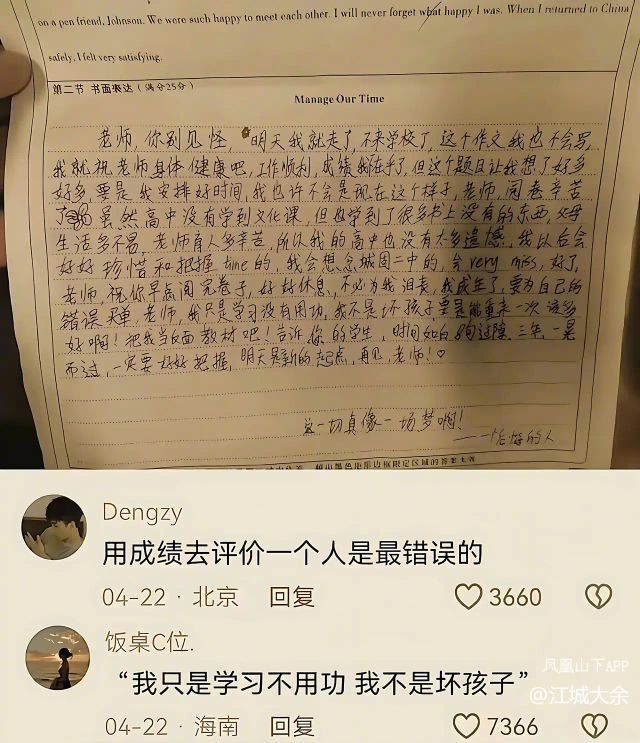 on a pen friend, Johnson. We were such happy to meet each other. I will never forget what happy I was. When I returned to China
safely, I felt very satisfying.
第二节 书面表达(满分25分)
Manage Our Time
老师,你别见怪,明天我就走了,不来学校了,这个作文我也不会写,
我就祝老师身体健康吧,工作顺利,成绩我在乎了,但这个题目让我想了好多
好多要是我安排好时间,我也许不会是现在这个样子,老师,阅卷辛苦
了 虽然高中没有学到文化课,但也学到了很多书上没有的东西,父母
生活多不易,老师育人多辛苦,所以我的高中也没有太多遗憾,我以后会
好好珍惜和把握time的,我会想念城固二中的,会very miss,好了,
老师,祝你早点阅完卷子,好好休息,不必为我沮丧,我成年了,要为自己的
错误买单,老师,我只是学习没有用功,我不是坏孩子要是能重来一次该多
好啊!把我当反面教材吧!告诉你的学生,时间如白驹过隙,三年,一晃
而过,一定要好好把握,明天是新的起点,再见,老师!♡
这一切真像一场梦啊!
——一个悔的人
Dengzy
用成绩去评价一个人是最错误的
04-22 · 北京 回复 3660
饭桌C位.
“我只是学习不用功 我不是坏孩子”
04-22 · 海南 回复 7366
凤凰山下APP
@江城大余